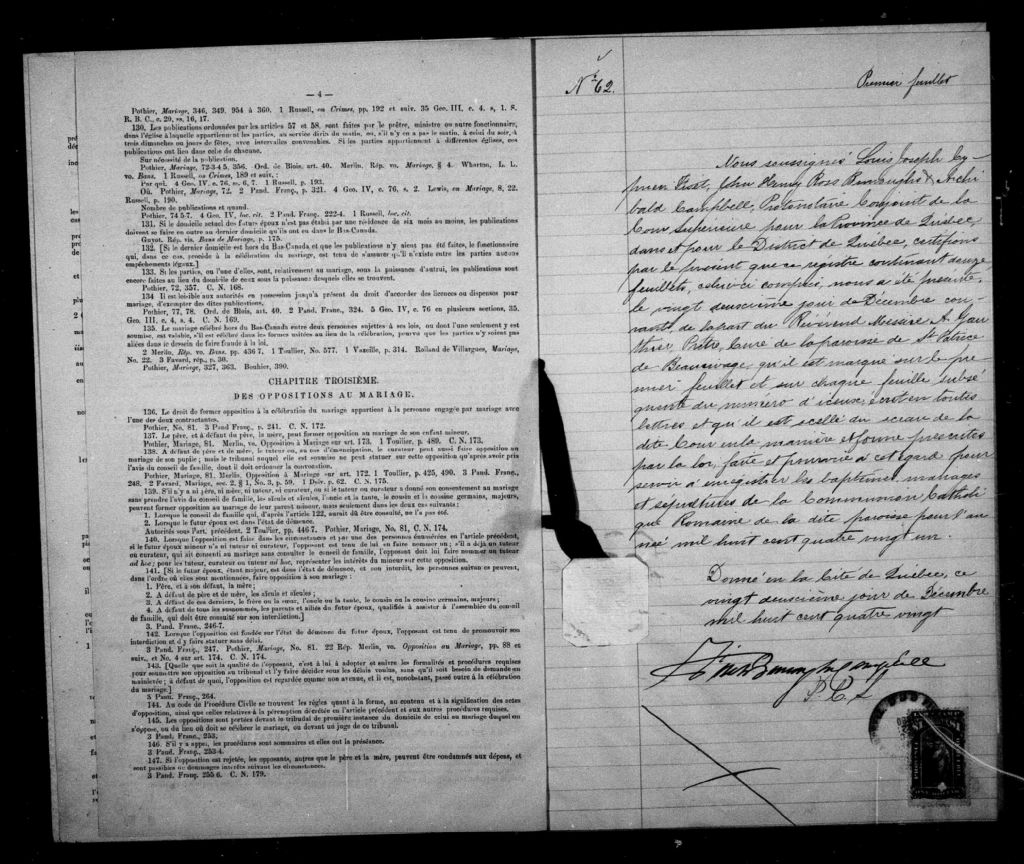 — 4 —
Pothier, Mariage, 346, 349, 954 à 360. 1 Russell, on Crimes, pp. 192 et suiv. 35 Geo. III, c. 4, s, 1. S.
R. B. C., c. 20, ss. 16, 17.
130. Les publications ordonnées par les articles 57 et 58, sont faites par le prêtre, ministre ou autre fonctionnaire,
dans l'église à laquelle appartiennent les parties, au service divin du matin, ou, s'il n'y en a pas le matin, à celui du soir, à
trois dimanches ou jours de fêtes, avec intervalles convenables. Si les parties appartiennent à différentes églises, ces
publications ont lieu dans celle de chacune.
Sur nécessité de la publication.
Pothier, Mariage, 72-3-4 5, 356. Ord. de Blois, art. 40. Merlin, Rép. vo. Mariage, § 4. Wharton, L. L.
vo. Bans. 1 Russell, on Crimes, 189 et suiv. :
Par qui. 4 Geo. IV, c. 76, ss. 6, 7. 1 Russell, p. 193.
Où. Pothier, Mariage, 72. 2 Pand. Franç., p. 321. 4 Geo. IV, c. 76, s. 2. Lewis, on Mariage, 8, 22.
Russell, p. 190.
Nombre de publications et quand.
Pothier, 74 5-7. 4 Geo. IV, loc. cit. 2 Pand. Franç. 222-4. 1 Russell, loc. cit.
131. Si le domicile actuel des futurs époux n'est pas établi par une résidence de six mois au moins, les publications
doivent se faire en outre au dernier domicile qu'ils ont eu dans le Bas-Canada.
Guyot. Rép. vis. Bans de Mariage, p. 175.
132. [Si le dernier domicile est hors du Bas-Canada et que les publications n'y aient pas été faites, le fonctionnaire
qui, dans ce cas, procède à la célébration du mariage, est tenu de s'assurer qu'il n'existe entre les parties aucuns
empêchements légaux.]
133. Si les parties, ou l'une d'elles, sont, relativement au mariage, sous la puissance d'autrui, les publications sont
encore faites au lieu du domicile de ceux sous la puissance desquels elles se trouvent.
Pothier, 72, 357. C. N. 168.
134 Il est loisible aux autorités en possession jusqu'à présent du droit d'accorder les licences ou dispenses pour
mariage, d'exempter des dites publications.
Pothier, 77, 78. Ord. de Blois, art. 40. 2 Pand. Franç., 324. 5 Geo. IV, c. 76 en plusieurs sections, 35.
Geo. III, c. 4, s. 4. C. N. 169.
135. Le mariage célébré hors du Bas-Canada entre deux personnes sujettes à ses lois, ou dont l'une seulement y est
soumise, est valable, s'il est célébré dans les formes usitées au lieu de la célébration, pourvu que les parties n'y soient pas
allées dans le dessein de faire fraude à la loi.
2 Merlin, Rép. vo. Bans, pp. 436 7. 1 Toullier, No. 577. 1 Vazeille, p. 314. Rolland de Villargues, Mariage,
No. 22. 3 Favard, rép., p. 30.
Pothier, Mariage, 327, 363. Bouhier, 390.
CHAPITRE TROISIÈME.
DES OPPOSITIONS AU MARIAGE.
136. Le droit de former opposition à la célébration du mariage appartient à la personne engagée par mariage avec
l'une des deux contractantes.
Pothier, No. 81. 3 Pand Franç., p. 241. C. N. 172.
137. Le père, et à défaut du père, la mère, peut former opposition au mariage de son enfant mineur.
Pothier, Mariage, 81. Merlin, vo. Opposition à Mariage sur art. 173. 1 Toullier, p. 489. C. N. 173.
138. A défaut de père et de mère, le tuteur ou, au cas d'émancipation, le curateur peut aussi faire opposition au
mariage de son pupile ; mais le tribunal auquel elle est soumise ne peut statuer sur cette opposition qu'après avoir pris
l'avis du conseil de famille, dont il doit ordonner la convocation.
Pothier, Mariage, 81. Merlin. Opposition à Mariage sur art. 172. 1 Toullier, p. 425, 490. 3 Pand. Franç.,
248. 2 Favard, Mariage, sec. 2, § 1, No. 3, p. 59. 1 Dolv. p. 62. C. N. 175.
139. S'il n'y a ni père, ni mère, ni tuteur, ni curateur, ou si le tuteur ou curateur a donné son consentement au mariage
sans prendre l'avis du conseil de famille, les aïeuls et aïeules, l'oncle et la tante, le cousin et la cousine germains, majeurs,
peuvent former opposition au mariage de leur parent mineur, mais seulement dans les deux cas suivants :
1. Lorsque le conseil de famille qui, d'après l'article 122, aurait dû être consulté, ne l'a pas été.
2. Lorsque le futur époux est dans l'état de démence.
Autorités sous l'art. précédent. 2 Toullier, pp. 446 7. Pothier, Mariage, No. 81, C. N. 174.
140. Lorsque l'opposition est faite dans les circonstances et par une des personnes énumérées en l'article précédent,
si le futur époux mineur n'a ni tuteur ni curateur, l'opposant est tenu de lui en faire nommer un ; s'il a déjà un tuteur
ou curateur, qui ait consenti au mariage sans consulter le conseil de famille, l'opposant doit lui faire nommer un tuteur
ad hoc ; pour les tuteur, curateur ou tuteur ad hoc, représenter les intérêts du mineur sur cette opposition.
141. [Si le futur époux, étant majeur, est dans l'état de démence, et non interdit, les personnes suivantes peuvent,
dans l'ordre où elles sont mentionnées, faire opposition à son mariage :
1. Père, et à son défaut, la mère ;
2. A défaut de père et de mère, les aïeuls et aïeules ;
3. A défaut de ces derniers, le frère ou la sœur, l'oncle ou la tante, le cousin ou la cousine germains, majeurs ;
4. A défaut de tous les susnommés, les parents et alliés du futur époux, qualifiés à assister à l'assemblée du conseil
de famille, qui doit être consulté sur son interdiction.]
3. Pand. Franç., 246-7.
142. Lorsque l'opposition est fondée sur l'état de démence du futur époux, l'opposant est tenu de promouvoir son
interdiction et d'y faire statuer sans délai.
3 Pand. Franç., 247. Pothier, Mariage, No. 81. 22 Rép. Merlin, vo. Opposition au Mariage, pp. 88 et
suiv., et No. 4 sur art. 174. C. N. 174.
143. [Quelle que soit la qualité de l'opposant, c'est à lui à adopter et suivre les formalités et procédures requises
pour soumettre son opposition au tribunal et l'y faire décider sous les délais voulus, sans qu'il soit besoin de demande en
mainlevée ; à défaut de quoi, l'opposition est regardée comme non avenue, et il est, nonobstant, passé outre à la célébration
du mariage.]
3 Pand. Franç., 264.
144. Au code de Procédure Civile se trouvent les règles quant à la forme, au contenu et à la signification des actes
d'opposition, ainsi que celles relatives à la péremption décrétée en l'article précédent et aux autres procédures requises.
145. Les oppositions sont portées devant le tribunal de première instance du domicile de celui au mariage duquel on
s'oppose, ou du lieu où doit se célébrer le mariage, ou devant un juge de ce tribunal.
3 Pand. Franç., 253.
146. S'il y a appel, les procédures sont sommaires et elles ont la préséance.
3 Pand. Franç., 253-4.
147. Si l'opposition est rejetée, les opposants, autres que le père et la mère, peuvent être condamnés aux dépens, et
sont passibles de dommages intérêts suivant les circonstances.
3 Pand. Franç. 255 6. C. N. 179.
No 62.
Premier feuillet
Nous soussignés Louis Joseph Cy-
prien Fiset, John Henry Ross Burroughs & Archi
bald Campbell, Protonotaire Conjoint de la
Cour Supérieure pour la Province de Québec,
dans et pour le District de Québec, certifions
par le présent que ce régistre contenant douze
feuillets, celui-ci compris, nous a été présenté,
le vingt deuxième jour de Décembre cou-
rant, de la part du Révérend Messire A. Gau
thier Prêtre, Curé de la paroisse de St Patrice
de Beaurivage, qu'il est marqué sur le pre
mier feuillet et sur chaque feuille subsé
quente du numéro d'iceux, écrit en toutes
lettres et qu'il est scellé du sceau de la
dite Cour en la manière et forme prescrites
par la loi, faite et pourvue à cet égard pour
servir à enregistrer les baptêmes, mariages
et sépultures de la Communion Catholi
que Romaine de la dite paroisse pour l'an
née mil huit cent quatre vingt un.
Donné en la Cité de Québec, ce
vingt deuxième jour de Décembre
mil huit cent quatre vingt
Fiset Burroughs Campbell
P. C. S.